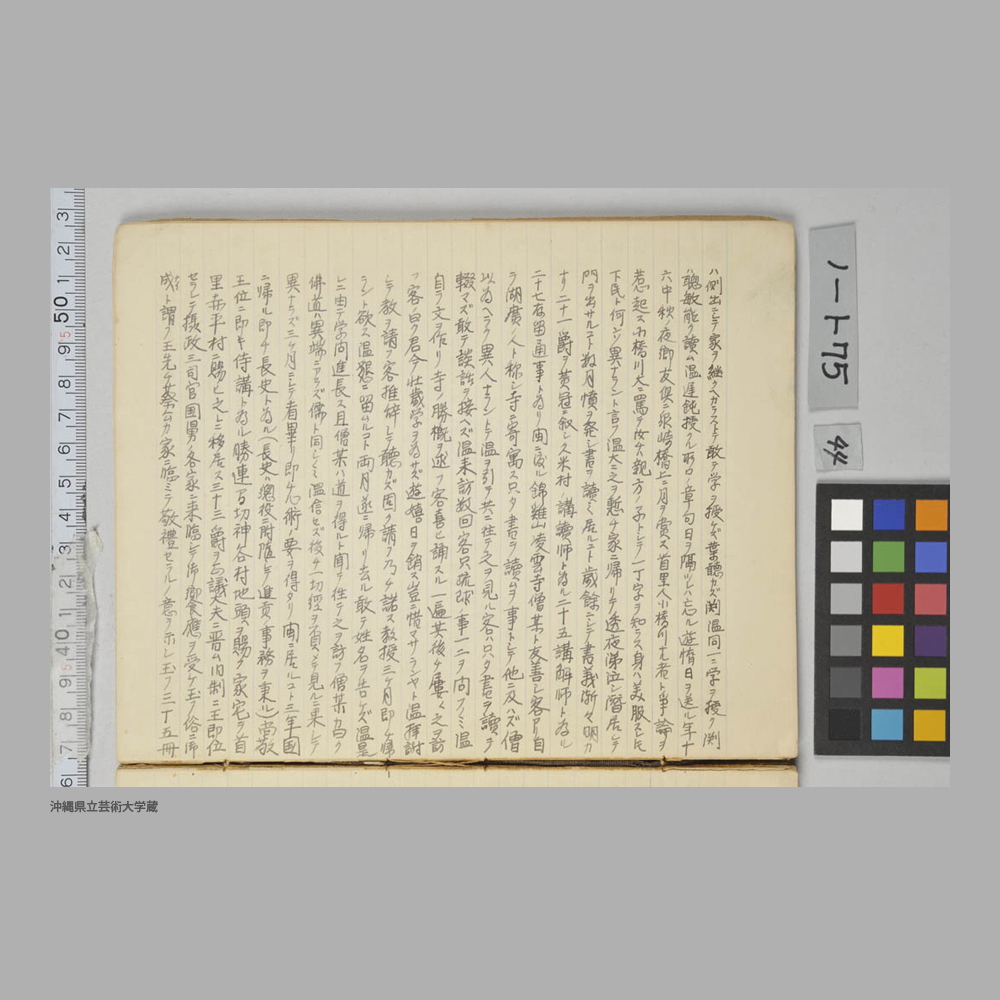 ハ側出ニシテ家ヲ継クヘカラストテ敢テ学ヲ授ケズ葉聴カズ渕温同一ニ学ヲ授ク渕
ハ聰敏能ク讀ム温遅鈍授クル所ノ章句日ヲ隔ツレハ忘ル遊惰日ヲ送ル年十
六中秋ノ夜郷友倶ニ泉崎橋上ニ月ヲ賞ス首里人小橋川ナル者ト事論ヲ
惹起ス小橋川大ニ罵テ汝ハ親方ノ子トシテ一丁字ヲ知ラス身ハ美服スルモ
下民ト何ンソ異ナラント言フ温大ニ之ヲ慙ヂ家ニ帰リテ透夜涕泣シ潛居シテ
門ヲ出サルコト数月憤ヲ発シ書ヲ讀ミ居ルコト歳餘ニシテ書義漸々明カ
ナリ二十一爵ヲ黄冠ニ叙シ久米村ノ講讀師トナル二十五講解師トナル
二十七存留通事トナリ閩ニ渡ル錦鶏山凌雲寺僧某ト友善シ客アリ自
ラ湖廣ノ人ト称シ寺ニ寄寓ス只タ書ヲ讀ムヲ事トシテ他ニ及ハズ僧
以為ヘラク異人ナラントテ温ヲ引テ共ニ往テ之ヲ見ル客ハ只タ書ヲ讀テ
輟マズ敢テ談話ヲ接ヘズ温来訪数回客只琉球ノ事一二ヲ問フノミ温
自ラ文ヲ作リ寺ノ勝概ヲ述フ客喜ヒ誦スル一遍其後チ屢々之ヲ訪
フ客曰ク君今壮歳学ヲ為サズ遊嬉日ヲ銷ス豈ニ惜マサランヤト温拝謝
シテ教ヲ請フ客推辞シテ聴カズ固ク請フ乃チ諾ス教授三ケ月即チ帰
ラント欲ス温懇ニ留ムルコト両月遂ニ帰リ去ル敢テ姓名ヲ告ケズ温是
レニ由テ学問進長ス且僧某ハ道ヲ得ルト聞ヲ往テ之ヲ訪フ僧某カ曰ク
佛道ハ異端ニアラズ儒ト同シト温信セズ後チ一切經ヲ買メテ見ルニ果シテ
異ナラズ三ケ月ニシテ看畢リ即チ心術ノ要ヲ得タリ閩ニ居ルコト三年国
ニ帰ル即チ長史トナル(長史ハ總役ニ附隨シテ進貢ノ事務ヲ東ル)尚敬
王位ニ即キ侍講トナル勝連ヨリ切神谷村地頭ヲ賜ク家宅ヲ首
里赤平村ニ賜ヒ之レニ移居ス三十三爵ヲ正議大夫ニ晋ム旧制ニ王即位
セラレテ攝政三司官国舅ノ各家ニ来臨シテ御饗應ヲ受ケ玉フ俗ニ御
成ト謂フ王先ツ蔡ムカ家ニ臨ミテ敬禮セラルノ意ヲ示シ玉フ三十五冊
ノート75
44
沖縄県立芸術大学蔵